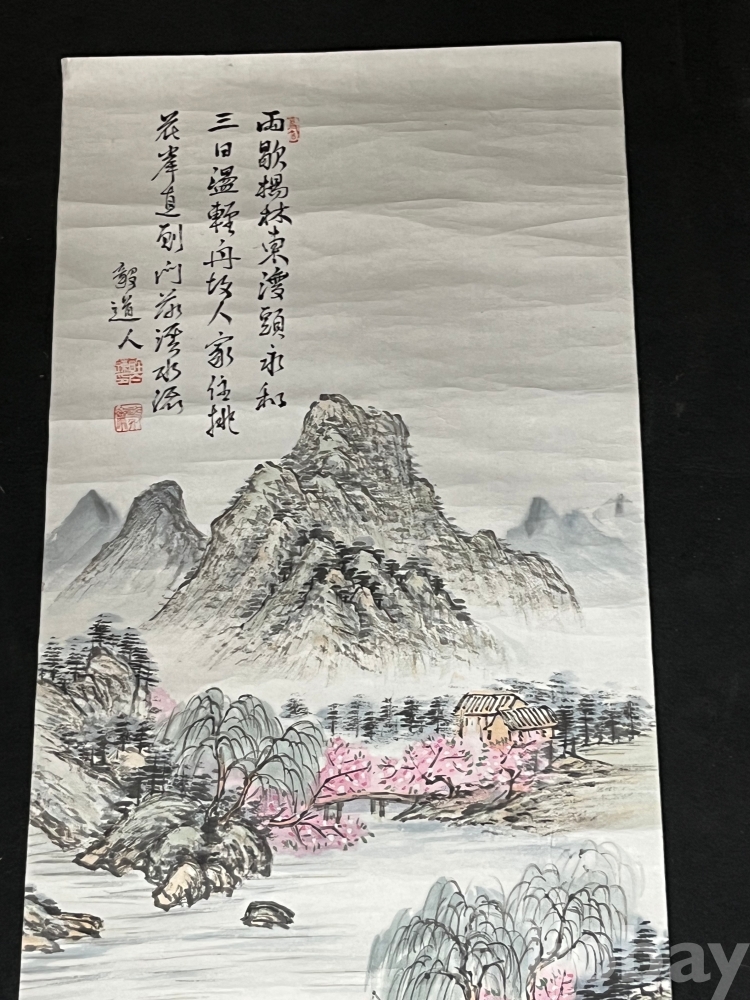 雨歇楊林東渡頭永和
三日盪輕舟故人家住桃
花岸直到門前溪水流
毅道人